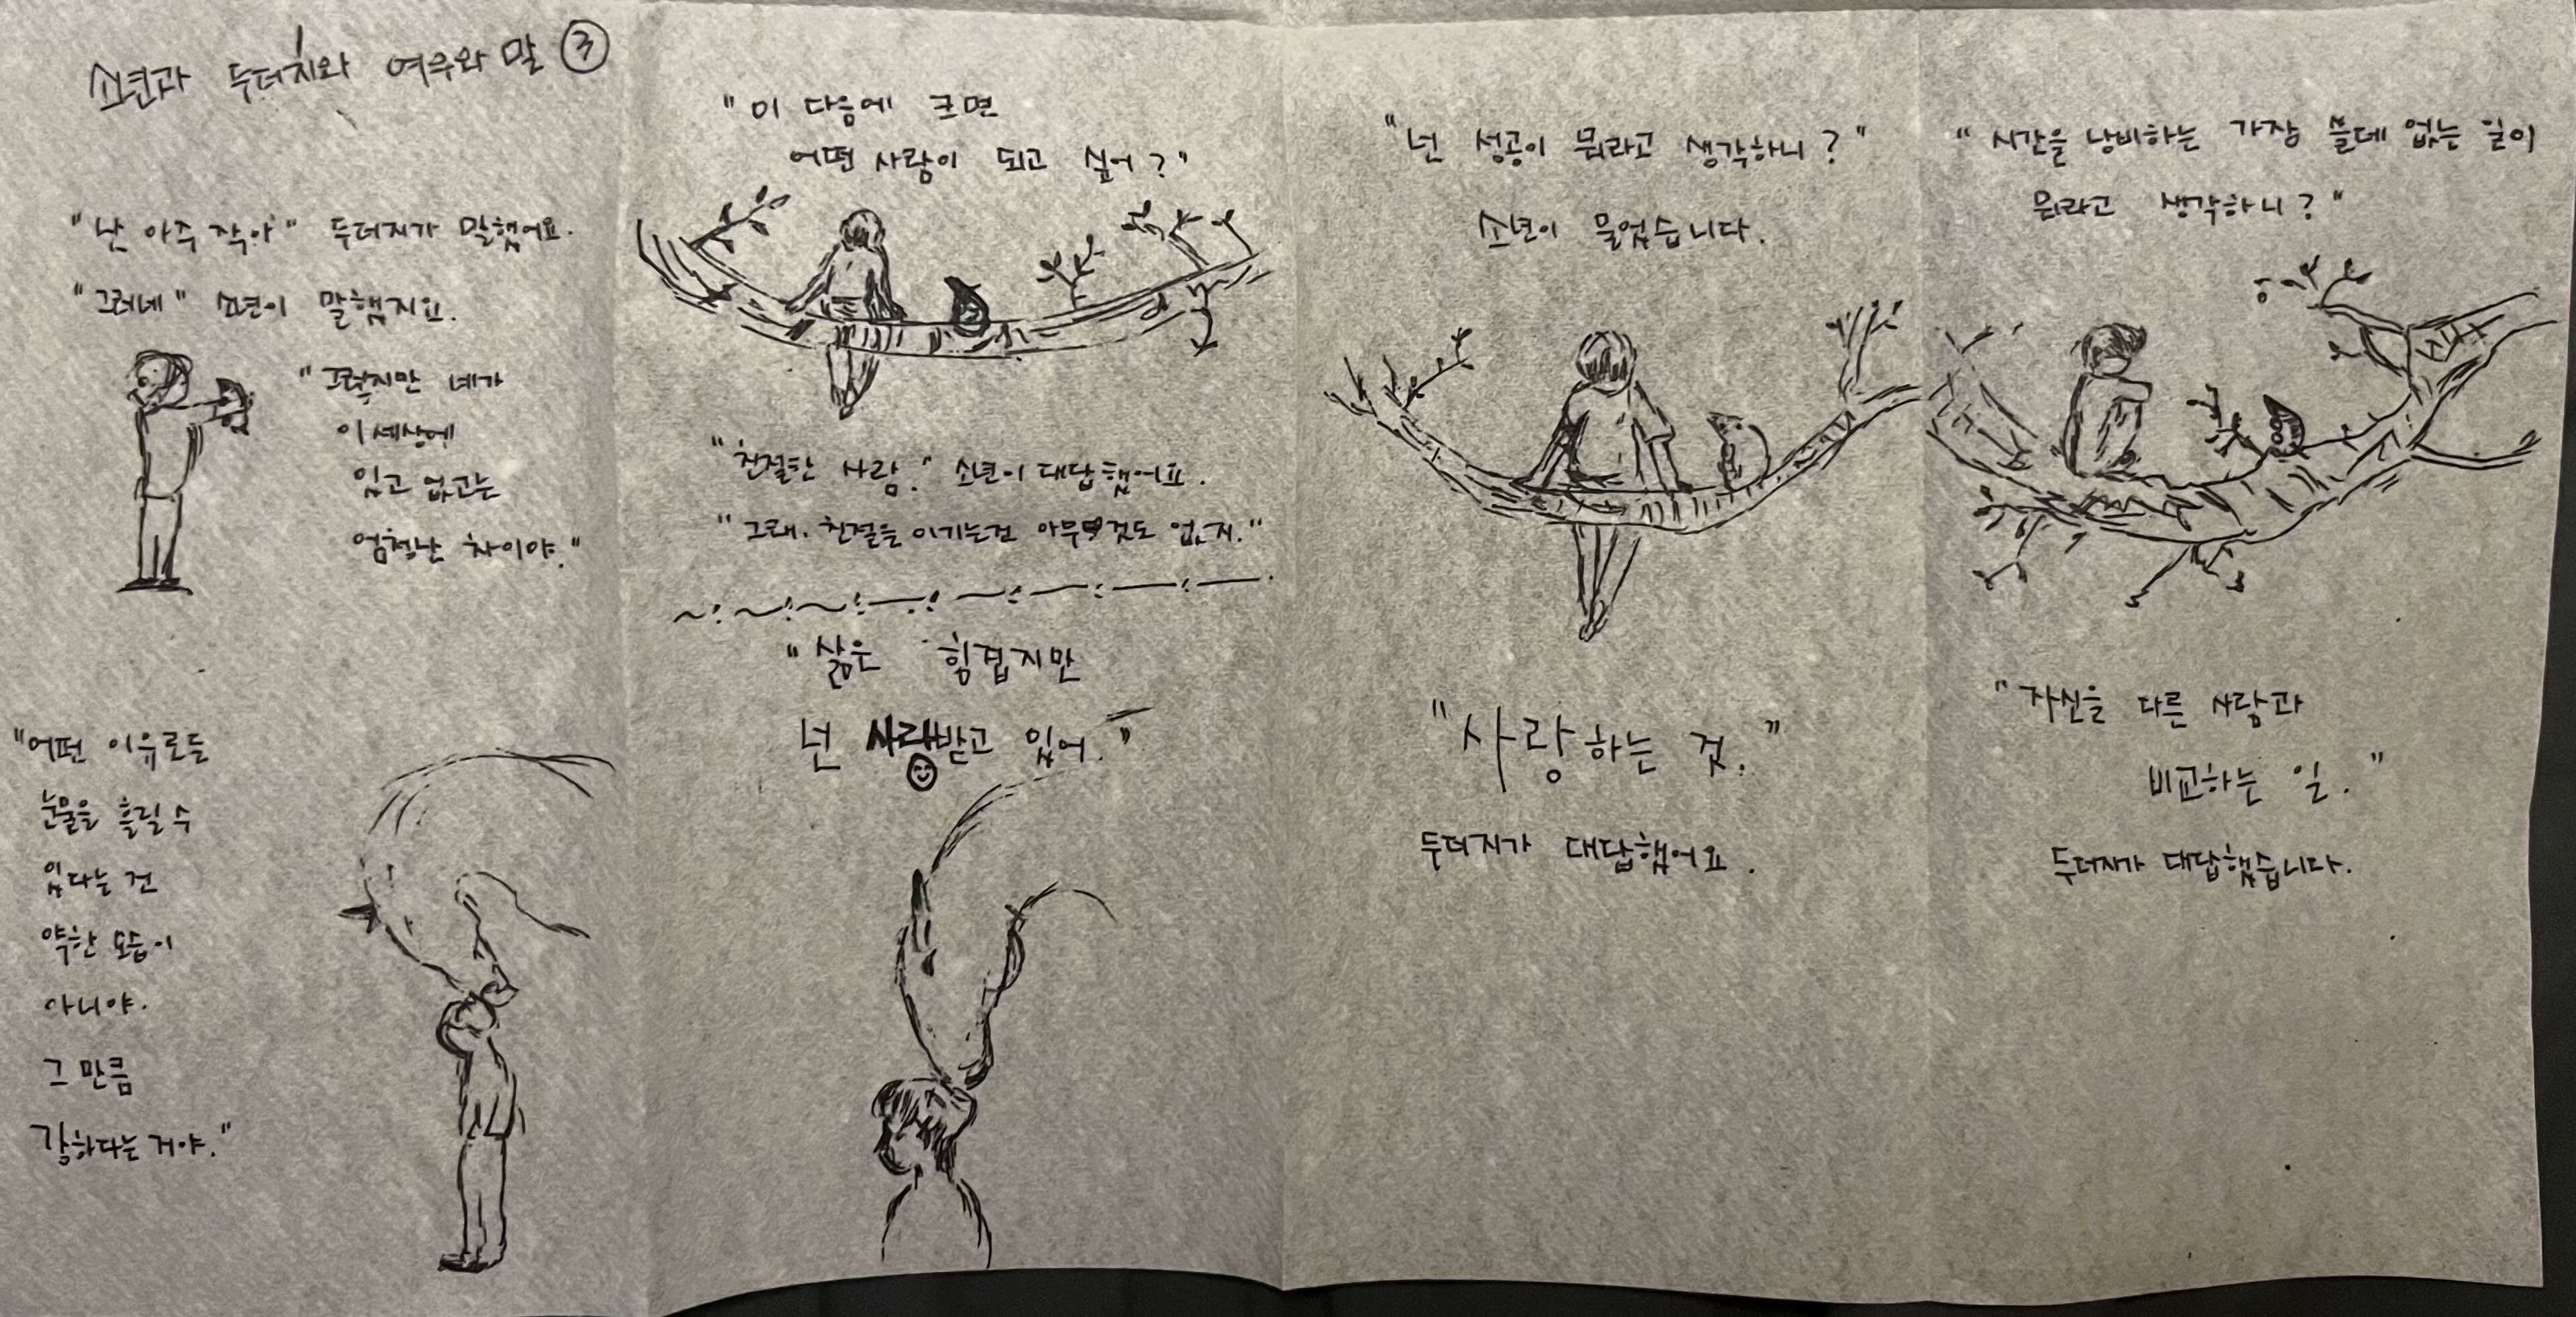 소년과 두더지와 여우와 말 ③
"난 아주 작아" 두더지가 말했어요.
"그러네" 소년이 말했지요.
"그렇지만 네가
이 세상에
있고 없고는
엄청난 차이야."
"어떤 이유로든
눈물을 흘릴 수
있다는 건
약한 모습이
아니야.
그 만큼
강하다는 거야."
"이 다음에 크면
어떤 사람이 되고 싶어?"
"친절한 사람." 소년이 대답했어요.
"그래. 친절을 이기는건 아무것도 없지."
"삶은 힘겹지만
넌 사랑받고 있어."
"넌 성공이 뭐라고 생각하니?"
소년이 물었습니다.
"사랑하는 것."
두더지가 대답했어요.
"시간을 낭비하는 가장 쓸데 없는 일이
뭐라고 생각하니?"
"자신을 다른 사람과
비교하는 일."
두더지가 대답했습니다.